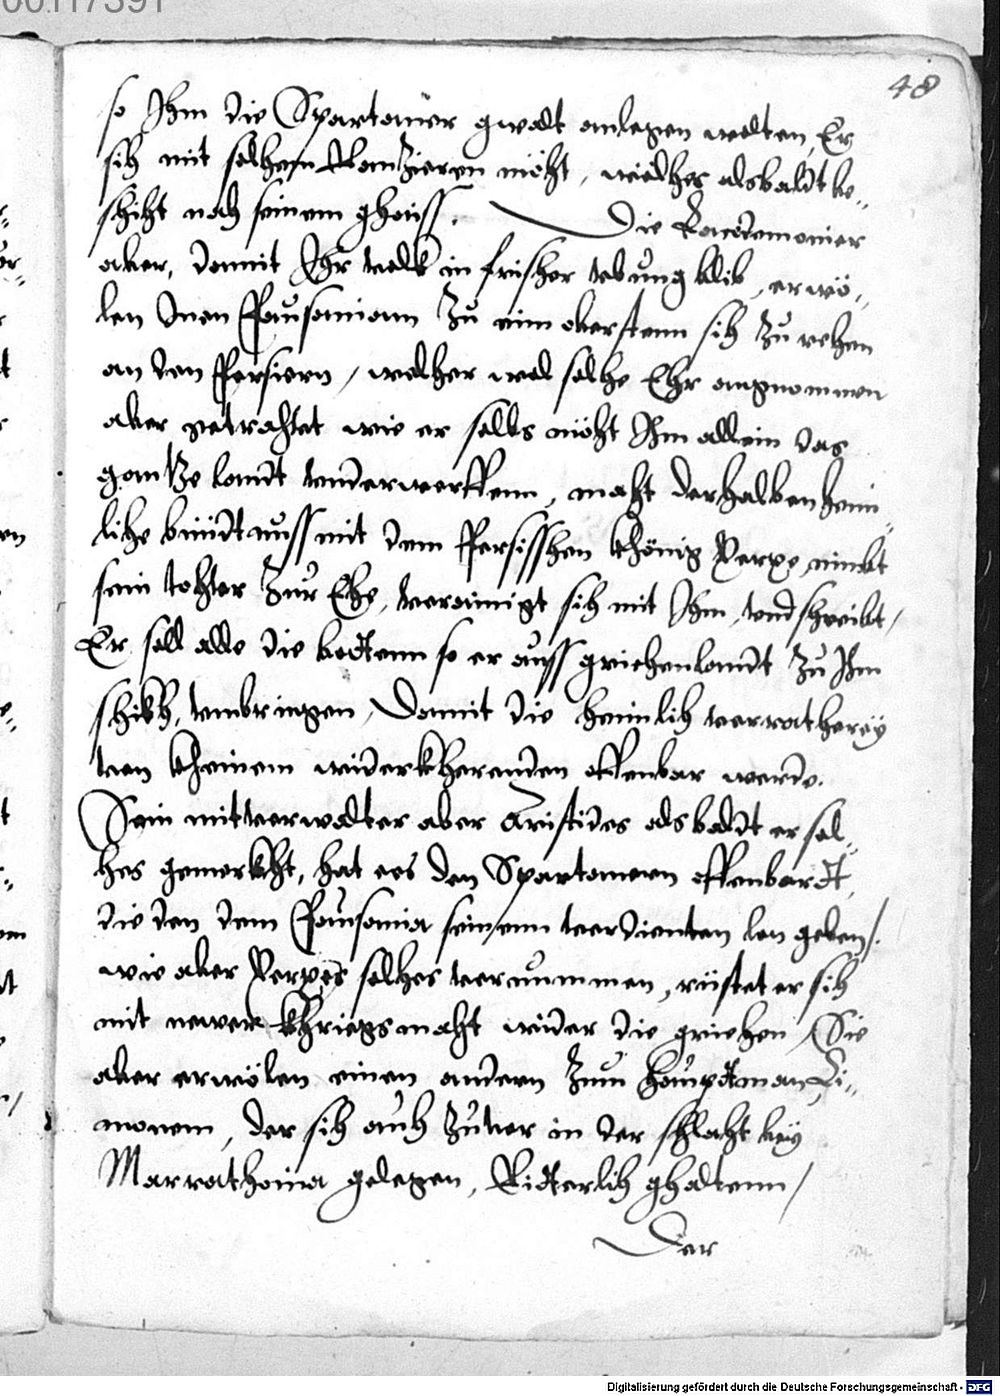 00117391
48
so Ihm die Spartaner gwalt anlegen wolten, Er
sich mit solhem Ranzieren möht, wiedhes alsbaldt be„
schiht nach seinem ghaiss. Die Lacedemonier
aber, damit Ihr volk in frischer vbung blib, erwö„
len Inen Pausaniam Zu eim oberstenn sich Zu rehen
an den Persiern, welher wol solhe Ehr angnommen
aber getrahtet wie er selbs möht Ihm allein das
gantze landt vnderwerffenn, maht derhalben heim„
lihe bündtnuss mit dem Persisshen Khönig Xerxe, nimbt
sein tohter Zur Ehe, verainigt sich mit Ihm, vnd schreibt,
Er soll alle die bodtenn so er auss griehenlandt Zu Ihm
shikh, vmbringen, Damit die heimlich verratherey
von kheinem widerkherenden offenbar werde.
Sein mitverwalter aber Aristides alsbaldt er sol„
hes gemerkht, hat ers den Spartanern offenbardt,
die den dem Pausania seinenn verdienten lon geben.
wie aber Xerxes solhes vernummen, rüstet er sich
mit newer khriegsmaht wider die griehen, Sie
aber erwölen einen andern Zum haupdtman Ci„
monem, der sich auch Zuvor in der schlaht bey
Marrathonia gelegen, Ridterlich ghaltenn,
Der
Digitalisierung gefördert durch die Deutsche Forschungsgemeinschaft - DFG